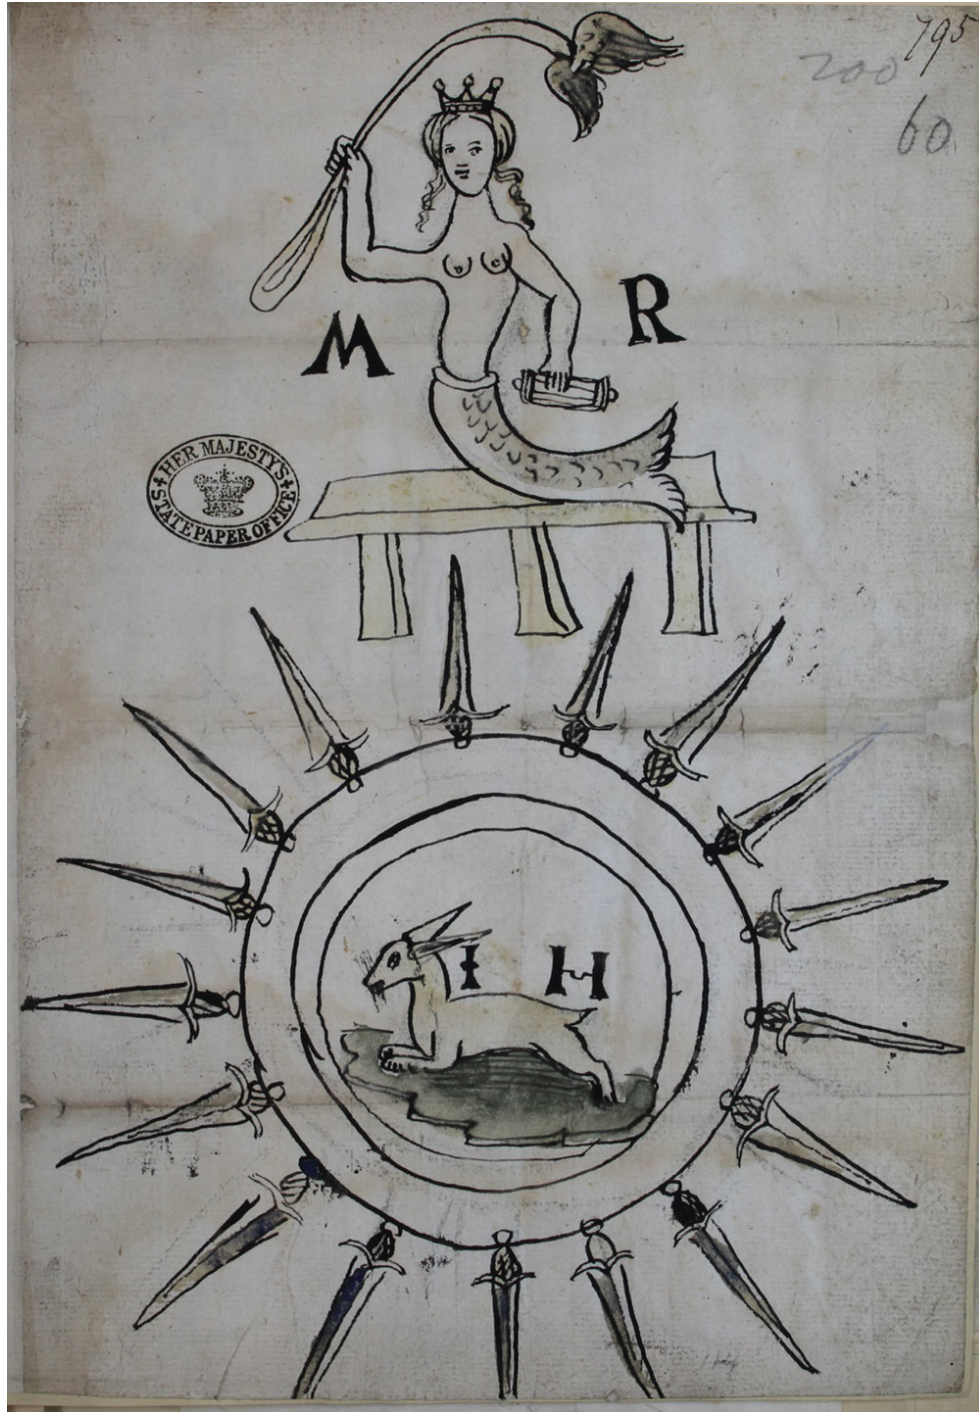 795
200
60
M R
HER MAJESTY'S
STATE PAPER OFFICE
I H